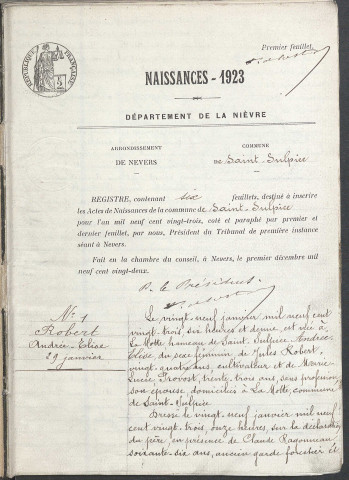 Premier feuillet.
RÉPUBLIQUE FRANÇAISE
NAISSANCES - 1923
DÉPARTEMENT DE LA NIÈVRE
ARRONDISSEMENT
DE NEVERS
COMMUNE
DE Saint-Sulpice
REGISTRE, contenant six feuillets, destiné à inscrire
les Actes de Naissances de la commune de Saint-Sulpice
pour l'an mil neuf cent vingt-trois, coté et paraphé par premier et
dernier feuillet, par nous, Président du Tribunal de première instance
séant à Nevers.
Fait en la chambre du conseil, à Nevers, le premier décembre mil
neuf cent vingt-deux.
P. le Président
N° 1
Robert
Andrée-Elise
29 janvier
Le vingt-neuf janvier mil neuf cent
vingt-trois, six heures et demie, est née à
La Motte hameau de Saint-Sulpice Andrée
Elise, du sexe féminin, de Jules Robert,
vingt-quatre ans, cultivateur et de Marie
Lucie Provost, trente-trois ans, sans profession,
son épouse, domiciliés à La Motte, commune
de Saint-Sulpice
Dressé le vingt-neuf janvier mil neuf
cent vingt-trois, onze heures, sur la déclaration
du père, en présence de Claude Ragonneau
soixante-six ans, ancien garde forestier et